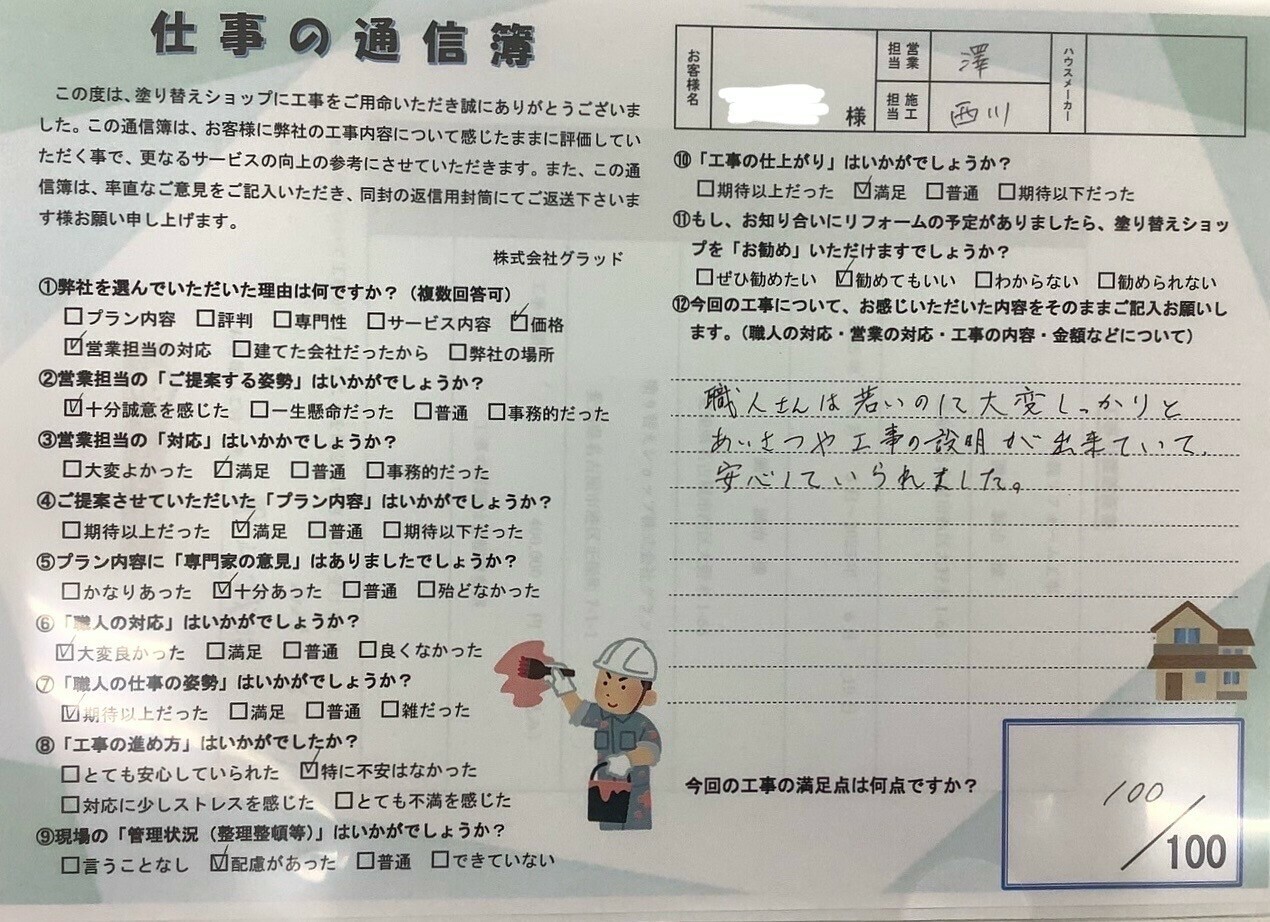 仕事の通信簿
この度は、塗り替えショップに工事をご用命いただき誠にありがとうございま
した。この通信簿は、お客様に弊社の工事内容について感じたままに評価してい
ただく事で、更なるサービスの向上の参考にさせていただきます。また、この通
信簿は、率直なご意見をご記入いただき、同封の返信用封筒にてご返送下さいま
す様お願い申し上げます。
株式会社グラッド
①弊社を選んでいただいた理由は何ですか？（複数回答可）
□プラン内容 □評判 □専門性 □サービス内容 ☑価格
☑営業担当の対応 □建てた会社だったから □弊社の場所
②営業担当の「ご提案する姿勢」はいかがでしょうか？
☑十分誠意を感じた □一生懸命だった □普通 □事務的だった
③営業担当の「対応」はいかかでしょうか？
□大変よかった ☑満足 □普通 □事務的だった
④ご提案させていただいた「プラン内容」はいかがでしょうか？
□期待以上だった ☑満足 □普通 □期待以下だった
⑤プラン内容に「専門家の意見」はありましたでしょうか？
□かなりあった ☑十分あった □普通 □殆どなかった
⑥「職人の対応」はいかがでしょうか？
☑大変良かった □満足 □普通 □良くなかった
⑦「職人の仕事の姿勢」はいかがでしょうか？
☑期待以上だった □満足 □普通 □雑だった
⑧「工事の進め方」はいかがでしたか？
□とても安心していられた ☑特に不安はなかった
□対応に少しストレスを感じた □とても不満を感じた
⑨現場の「管理状況（整理整頓等）」はいかがでしょうか？
□言うことなし ☑配慮があった □普通 □できていない
お客様名
様
営業担当
澤
施工担当
西川
ハウスメーカー
⑩「工事の仕上がり」はいかがでしょうか？
□期待以上だった ☑満足 □普通 □期待以下だった
⑪もし、お知り合いにリフォームの予定がありましたら、塗り替えショッ
プを「お勧め」いただけますでしょうか？
□ぜひ勧めたい ☑勧めてもいい □わからない □勧められない
⑫今回の工事について、お感じいただいた内容をそのままご記入お願いし
ます。（職人の対応・営業の対応・工事の内容・金額などについて）
職人さんは若いのに大変しっかりと
あいさつや工事の説明が出来ていて、
安心していられました。
今回の工事の満足点は何点ですか？
100
/100